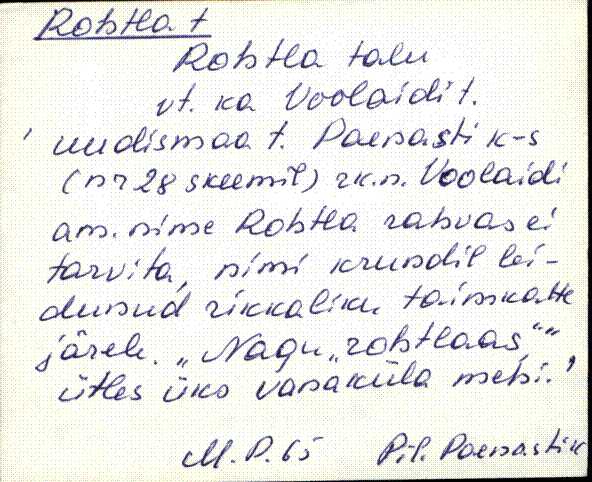 Rohtla t
Rohtla talu
vt. ka Voolaidi t.
' uudismaa t. Paenasti k-s
(nr 28 skeemil) rk.n. Voolaidi
am. nime Rohtla rahvas ei
tarvita, nimi krundil lei-
dunud rikkaliku taimkatte
järele. „Nagu „rohtlaas“ “
ütles üks vanaküla mehi.'
M.P. 65 Pil. Paenasti k